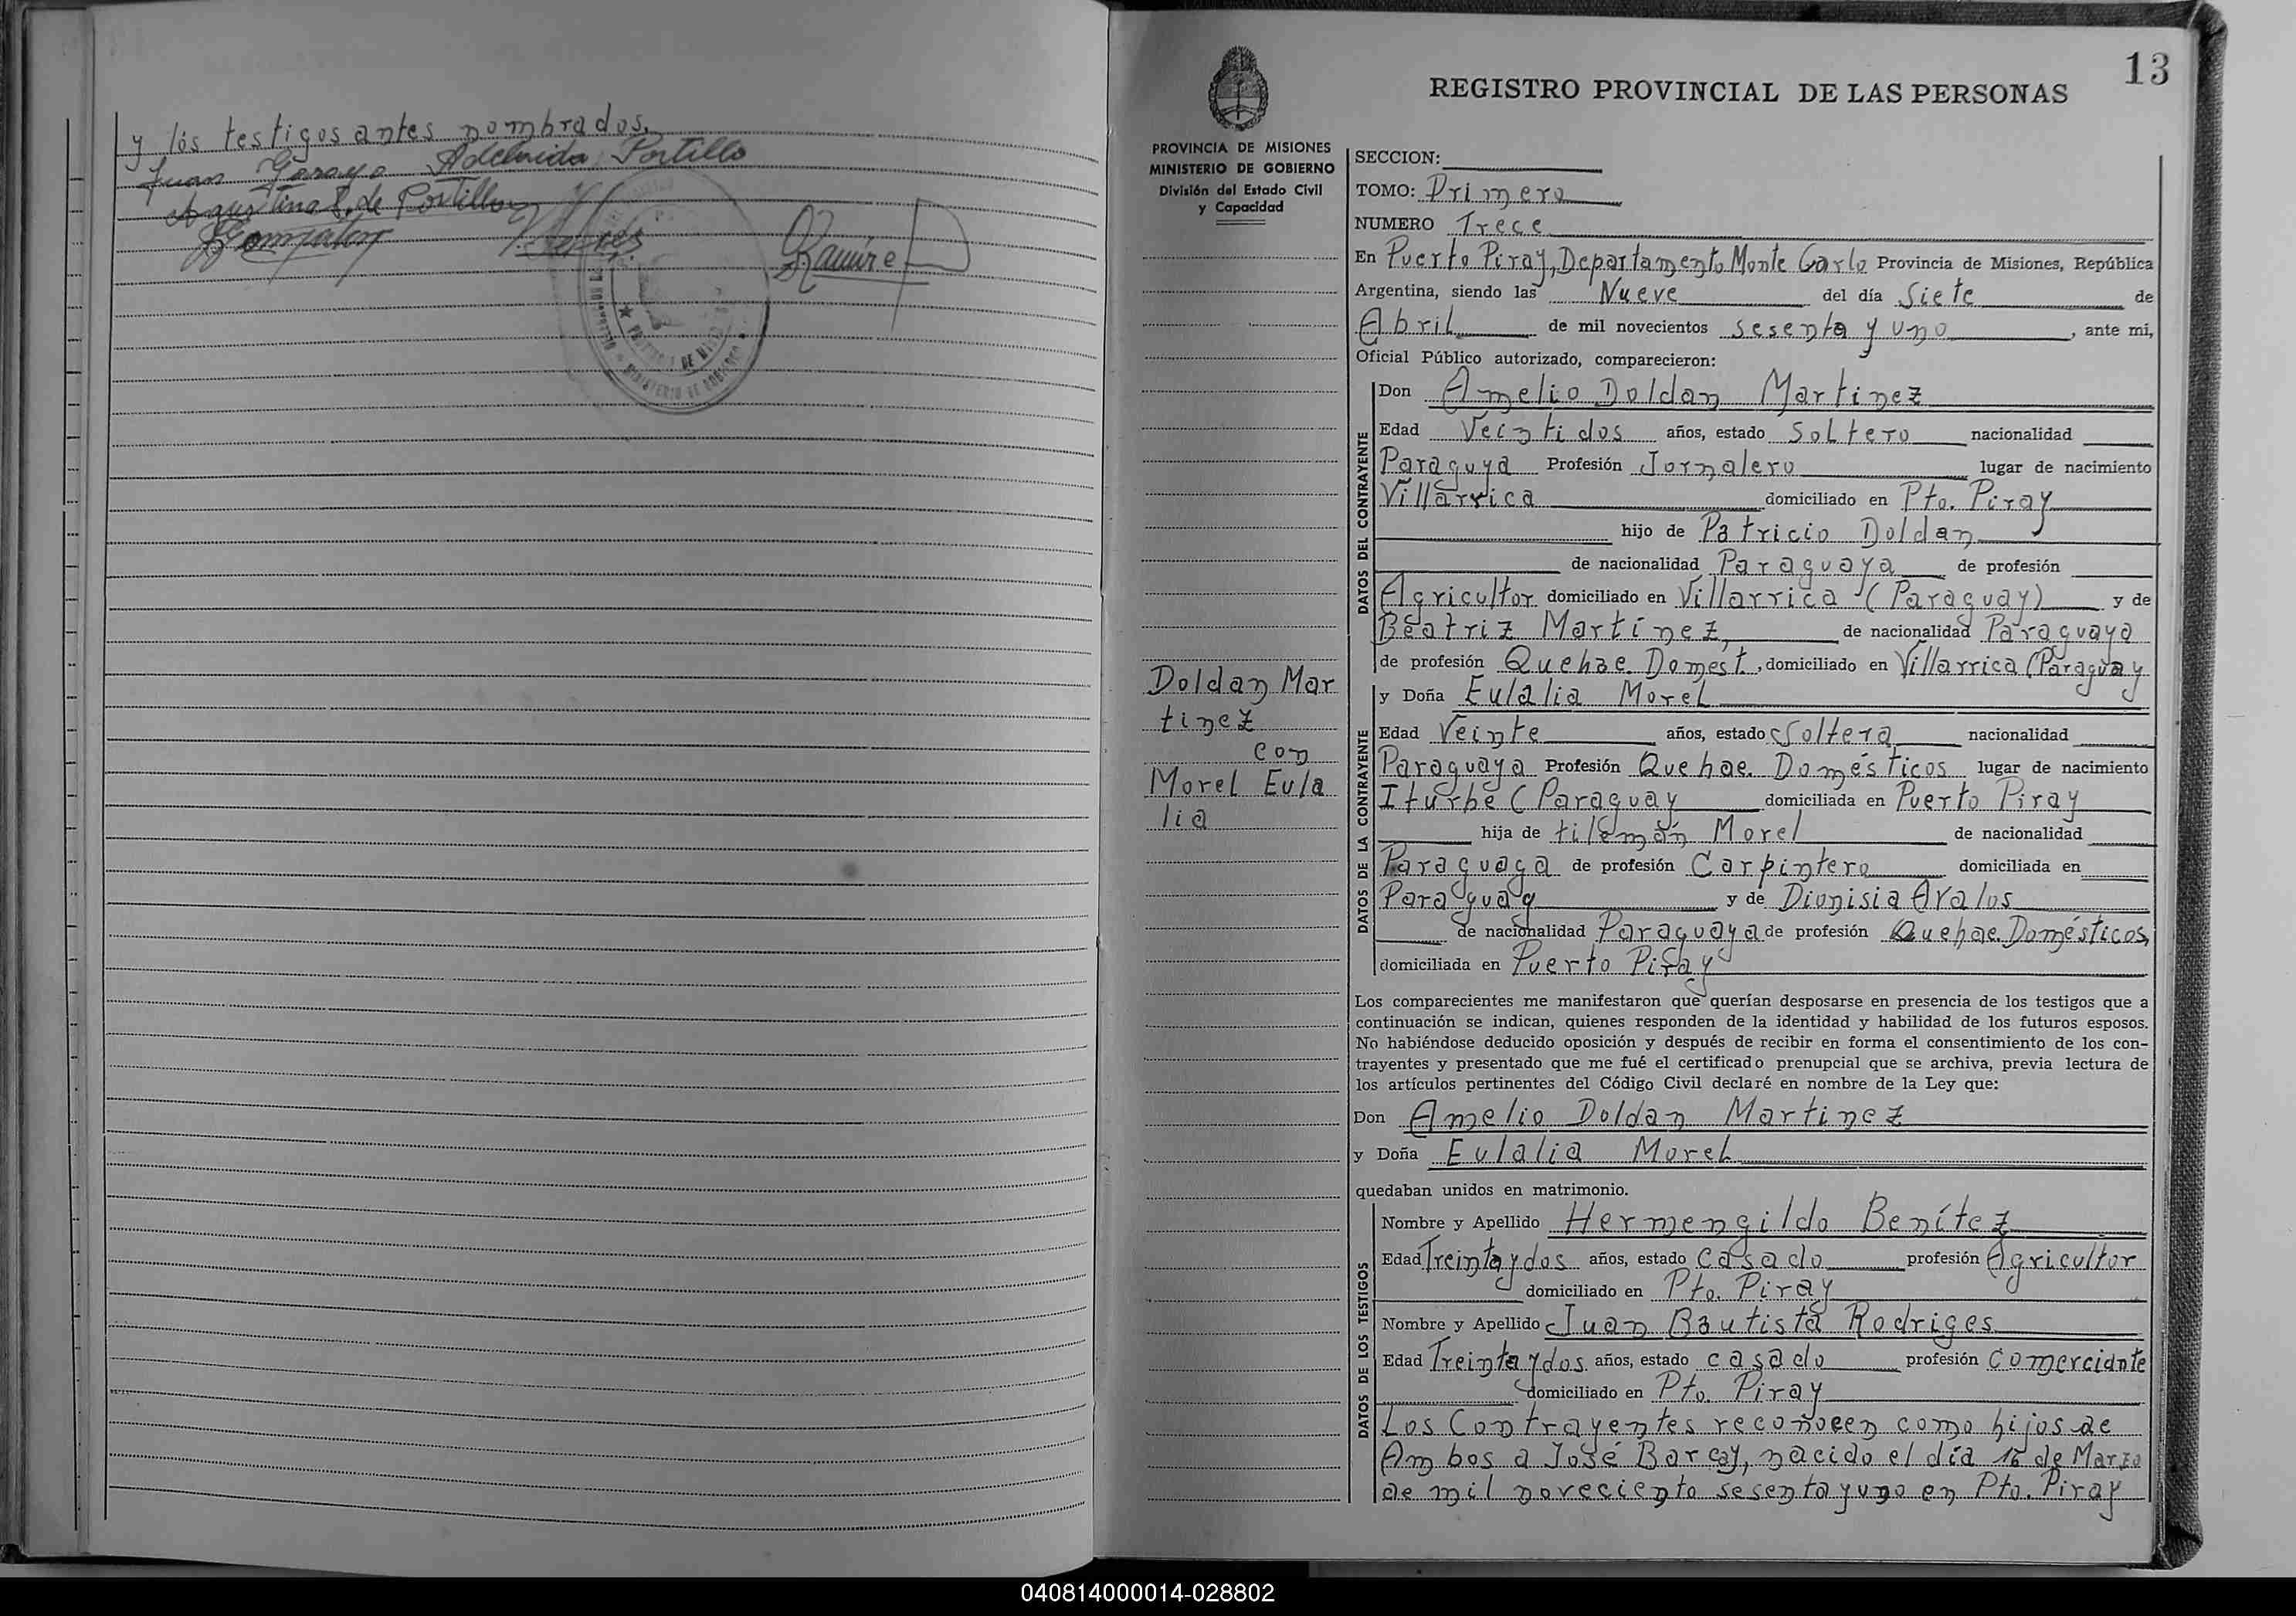 y lós testigos antes nombrados.
Juan Garayo Adelaida Portillo
Agustina S. de Portillo
Gonzalez
Ramirez
MINISTERIO DE GOBIERNO
13
REGISTRO PROVINCIAL DE LAS PERSONAS
PROVINCIA DE MISIONES
MINISTERIO DE GOBIERNO
División del Estado Civil
y Capacidad
Doldan Mar
tinez
con
Morel Eula
lia
SECCION:
TOMO: Primero
NUMERO Trece
En Puerto Piray, Departamento Monte Carlo Provincia de Misiones, República
Argentina, siendo las Nueve del día Siete de
Abril de mil novecientos sesenta y uno, ante mi,
Oficial Público autorizado, comparecieron:
DATOS DEL CONTRAYENTE
Don Amelio Doldan Martinez
Edad Veintidos años, estado Soltero nacionalidad
Paraguya Profesión Jornalero lugar de nacimiento
Villarrica domiciliado en Pto. Piray
hijo de Patricio Doldan
de nacionalidad Paraguaya de profesión
Agricultor domiciliado en Villarrica (Paraguay) y de
Beatriz Martínez, de nacionalidad Paraguaya
de profesión Quehae. Domest., domiciliado en Villarrica (Paraguay
DATOS DE LA CONTRAYENTE
y Doña Eulalia Morel
Edad Veinte años, estado Soltera nacionalidad
Paraguaya Profesión Quehae. Domésticos lugar de nacimiento
Iturbe (Paraguay domiciliada en Puerto Piray
hija de tilemón Morel de nacionalidad
Paraguaya de profesión Carpintero domiciliada en
Paraguay y de Dionisia Avalos
de nacionalidad Paraguaya de profesión Quehae. Domésticos,
domiciliada en Puerto Piray
Los comparecientes me manifestaron que querían desposarse en presencia de los testigos que a
continuación se indican, quienes responden de la identidad y habilidad de los futuros esposos.
No habiéndose deducido oposición y después de recibir en forma el consentimiento de los con-
trayentes y presentado que me fué el certificado prenupcial que se archiva, previa lectura de
los artículos pertinentes del Código Civil declaré en nombre de la Ley que:
Don Amelio Doldan Martinez
y Doña Eulalia Morel
quedaban unidos en matrimonio.
DATOS DE LOS TESTIGOS
Nombre y Apellido Hermengildo Benítez
Edad Treinta y dos años, estado casado profesión Agricultor
domiciliado en Pto. Piray
Nombre y Apellido Juan Bautista Rodriges
Edad Treinta y dos años, estado casado profesión comerciante
domiciliado en Pto. Piray
Los Contrayentes reconocen como hijos de
Ambos a José, nacido el día 16 de Marzo
de mil noveciento sesenta y uno en Pto. Piray
040814000014-028802